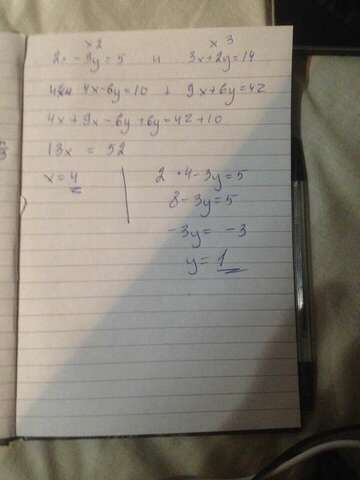 x2 x3
2x - 3y = 5 и 3x + 2y = 14
4x - 6y = 10 + 9x + 6y = 42
4x + 9x - 6y + 6y = 42 + 10
13x = 52
x = 4
2 • 4 - 3y = 5
8 - 3y = 5
-3y = -3
y = 1